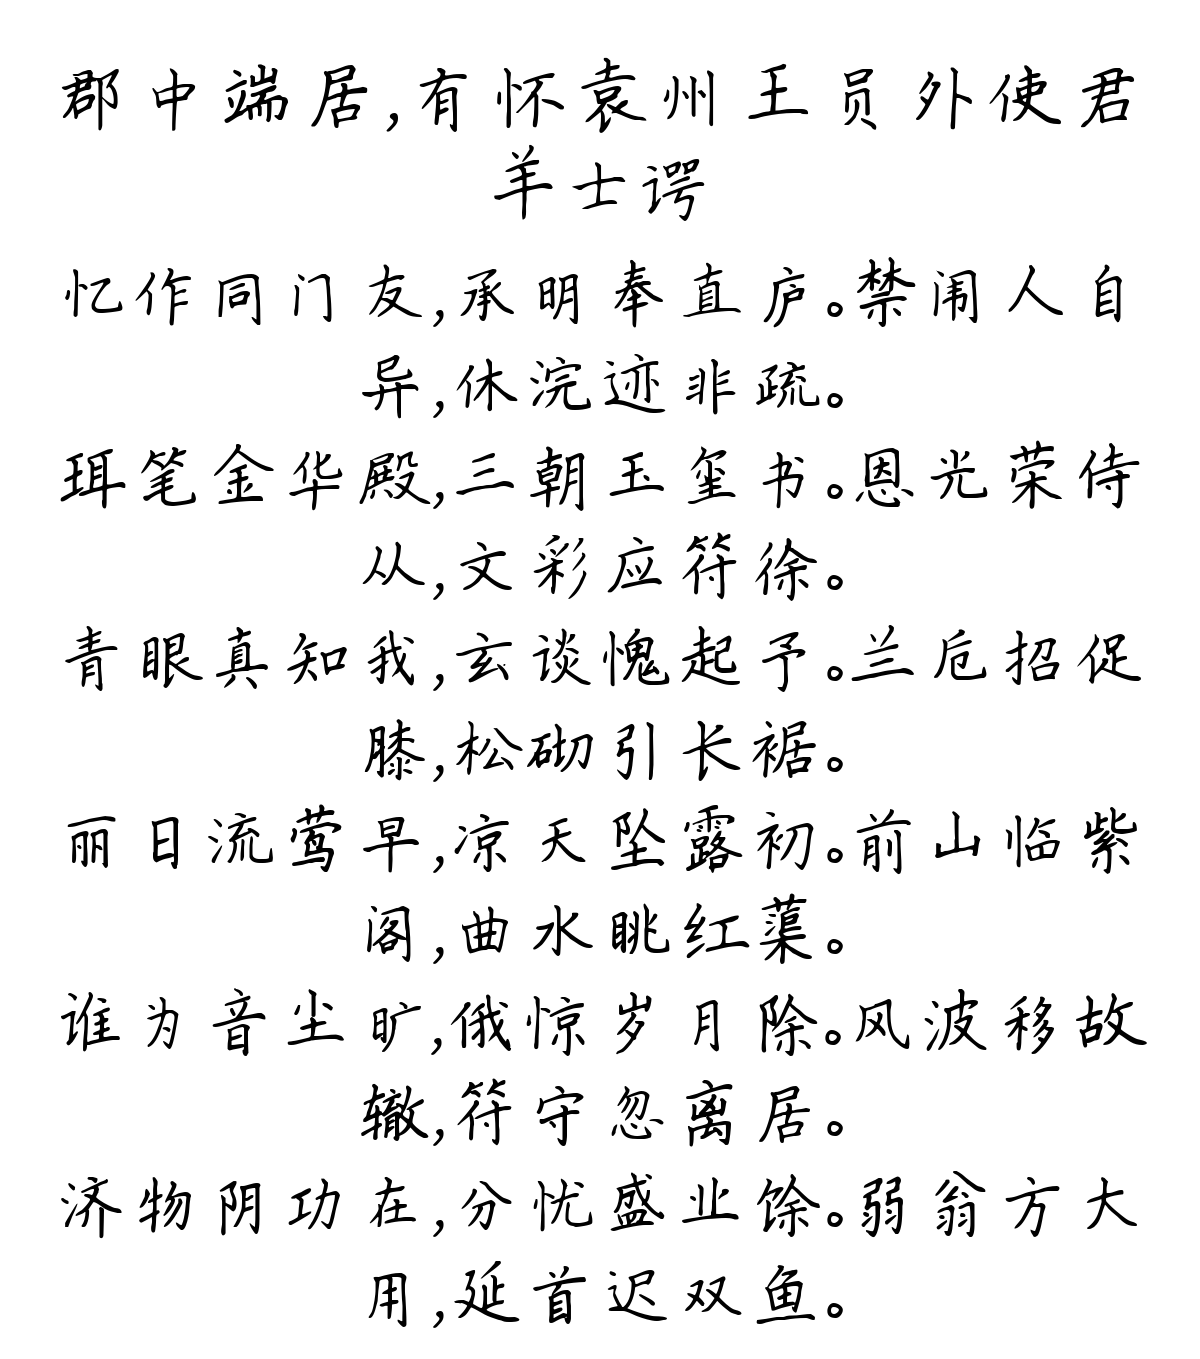 郡中端居,有怀袁州王员外使君
羊士谔
忆作同门友,承明奉直庐。禁闱人自
异,休浣迹非疏。
珥笔金华殿,三朝玉玺书。恩光荣侍
从,文彩应符徐。
青眼真知我,玄谈愧起予。兰卮招促
膝,松砌引长裾。
丽日流莺早,凉天坠露初。前山临紫
阁,曲水眺红蕖。
谁为音尘旷,俄惊岁月除。风波移故
辙,符守忽离居。
济物阴功在,分忧盛业馀。弱翁方大
用,延首迟双鱼。